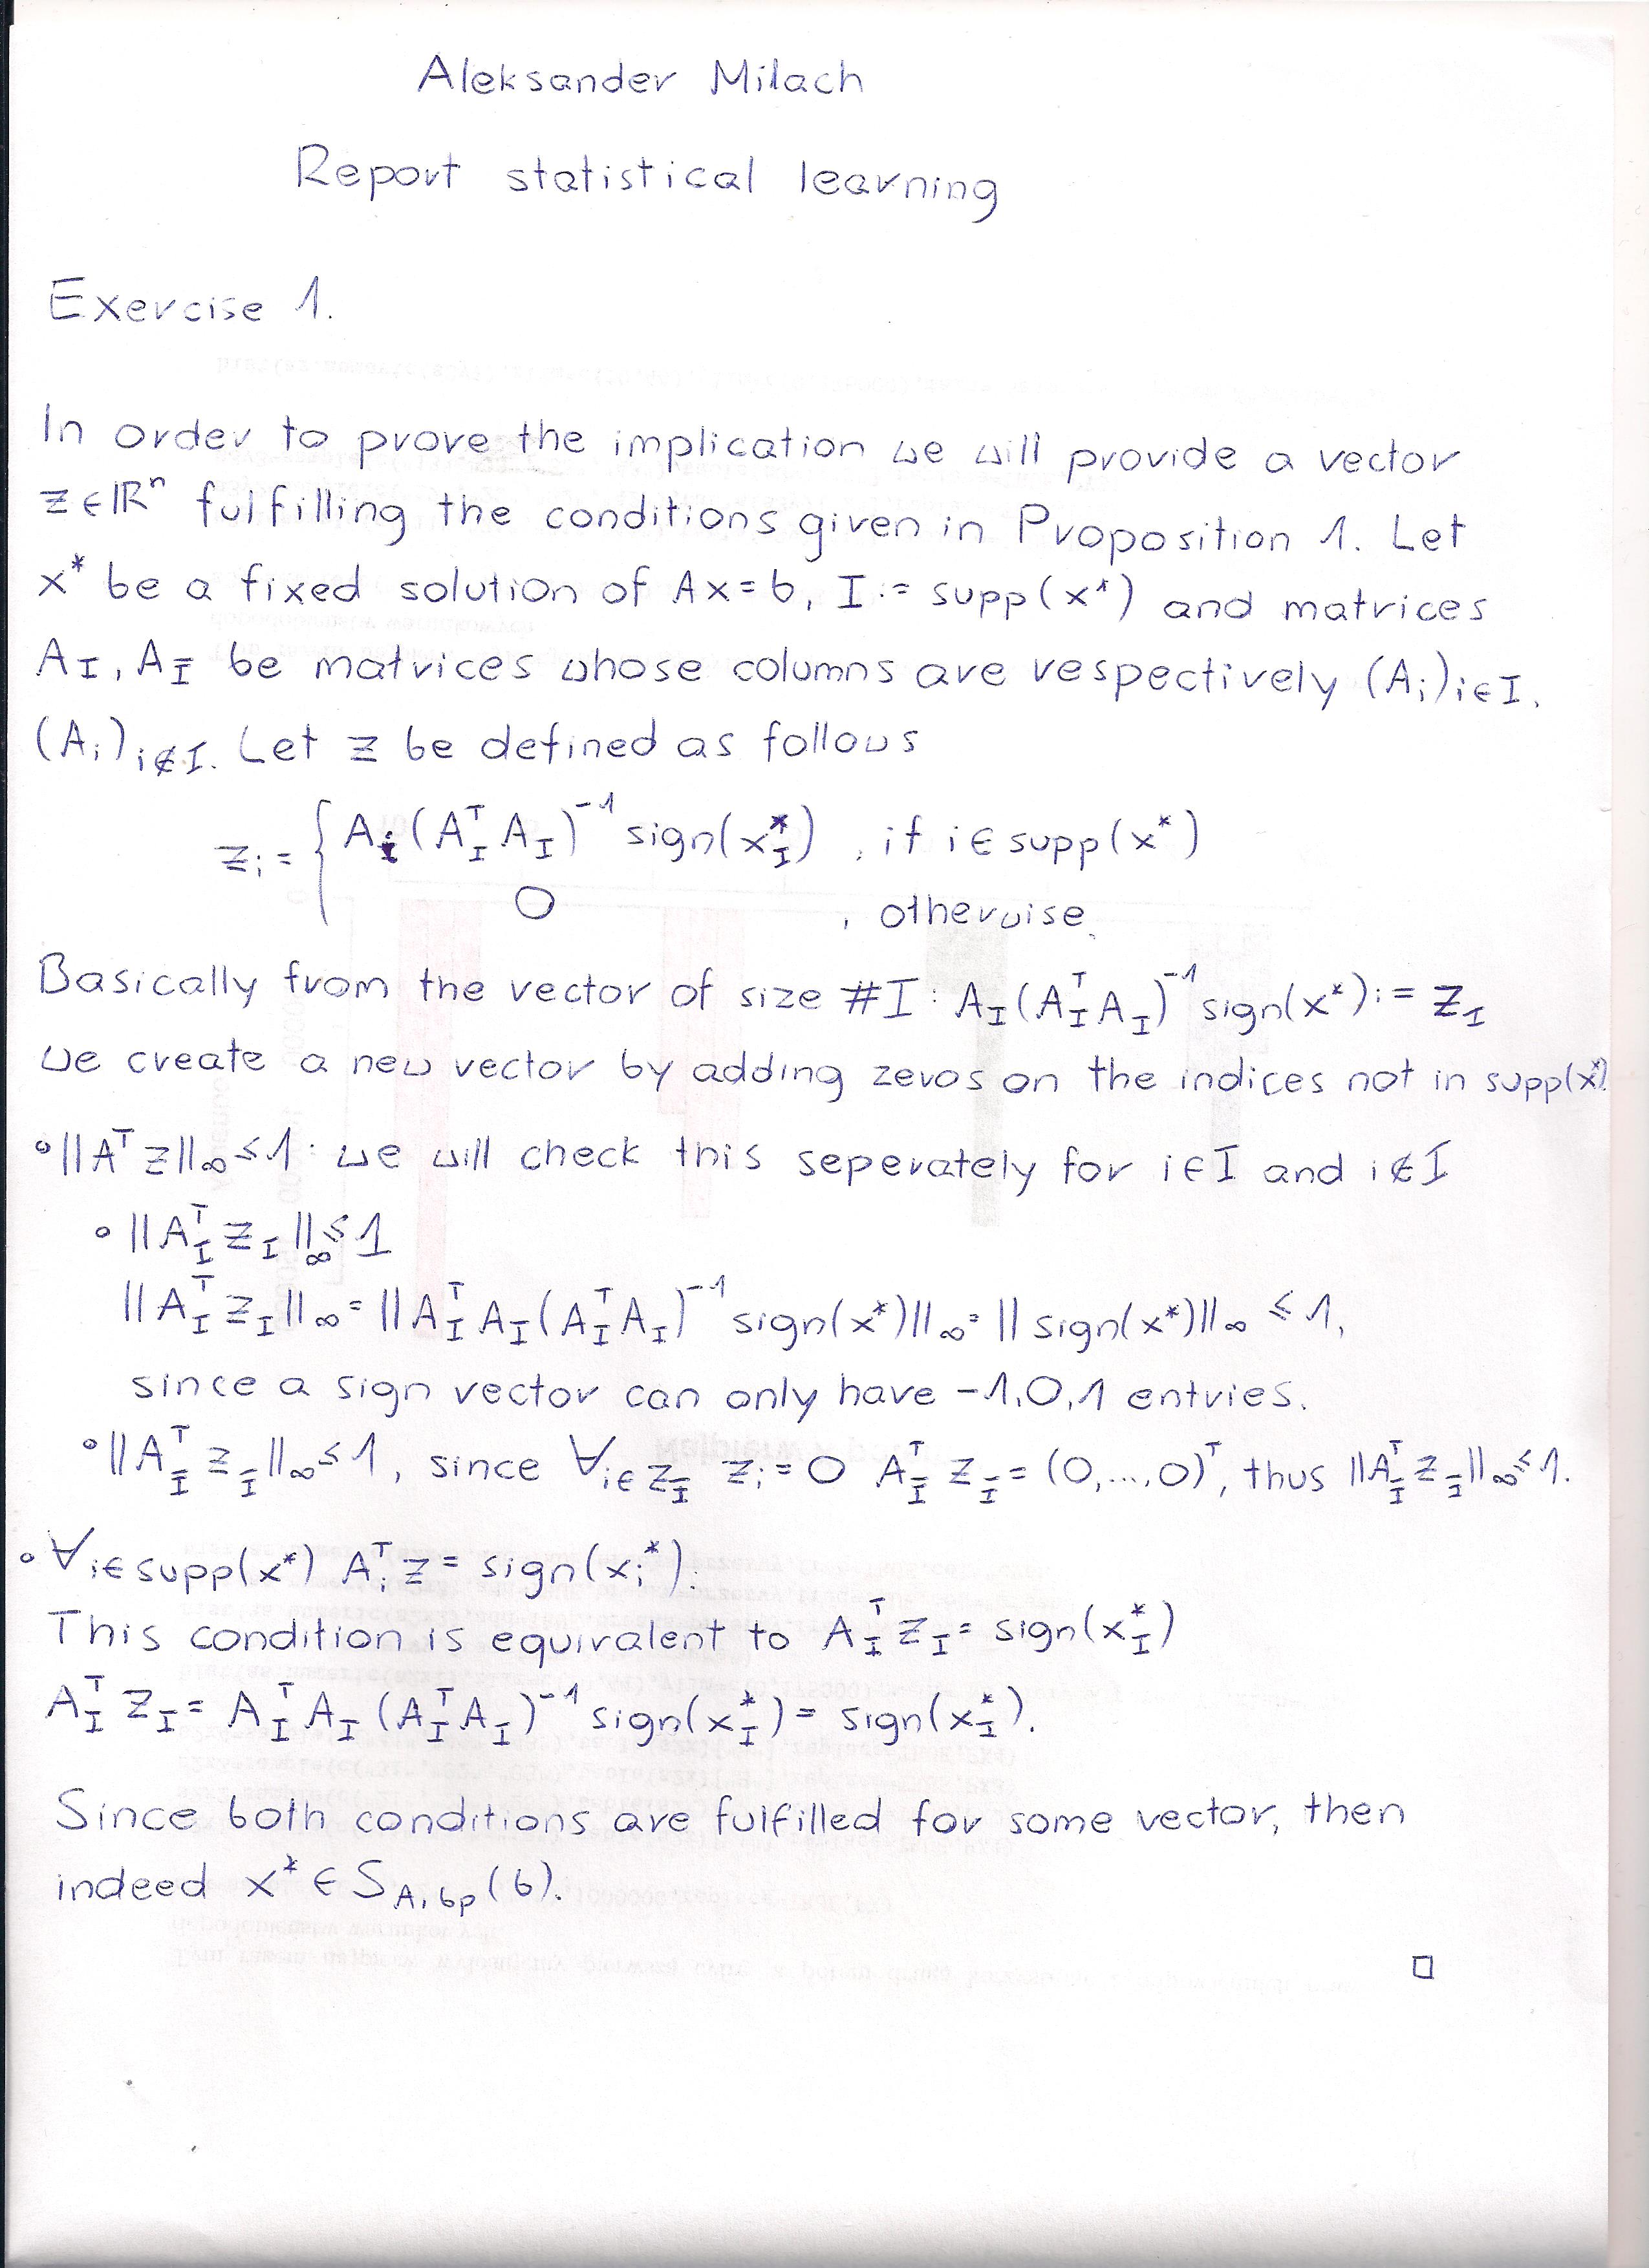 Aleksander Milach
Report statistical learning
Exercise 1.
In order to prove the implication we will provide a vector
z ∈ ℝⁿ fulfilling the conditions given in Proposition 1. Let
x* be a fixed solution of Ax = b, I := supp(x*) and matrices
A_I, A_Ī be matrices whose columns are respectively (A_i)_{i∈I},
(A_i)_{i∉I}. Let z be defined as follows
z_i = { A_I (A_I^T A_I)^{-1} sign(x*_I) , if i ∈ supp(x*)
0 , otherwise.
Basically from the vector of size #I: A_I (A_I^T A_I)^{-1} sign(x*) := z_I
we create a new vector by adding zeros on the indices not in supp(x*).
∘ ||A^T z||_∞ ≤ 1: we will check this seperately for i ∈ I and i ∉ I
∘ ||A_I^T z_I||_∞ ≤ 1
||A_I^T z_I||_∞ = ||A_I^T A_I (A_I^T A_I)^{-1} sign(x*)||_∞ = ||sign(x*)||_∞ ≤ 1,
since a sign vector can only have -1,0,1 entries.
∘ ||A_Ī^T z_Ī||_∞ ≤ 1, since ∀_{i ∈ z_Ī} z_i = 0 A_Ī^T z_Ī = (0,...,0)^T, thus ||A_Ī^T z_Ī||_∞ ≤ 1.
∘ ∀_{i ∈ supp(x*)} A_i^T z = sign(x_i*):
This condition is equivalent to A_I^T z_I = sign(x*_I)
A_I^T z_I = A_I^T A_I (A_I^T A_I)^{-1} sign(x*_I) = sign(x*_I).
Since both conditions are fulfilled for some vector, then
indeed x* ∈ S_{A,bp}(b).
□